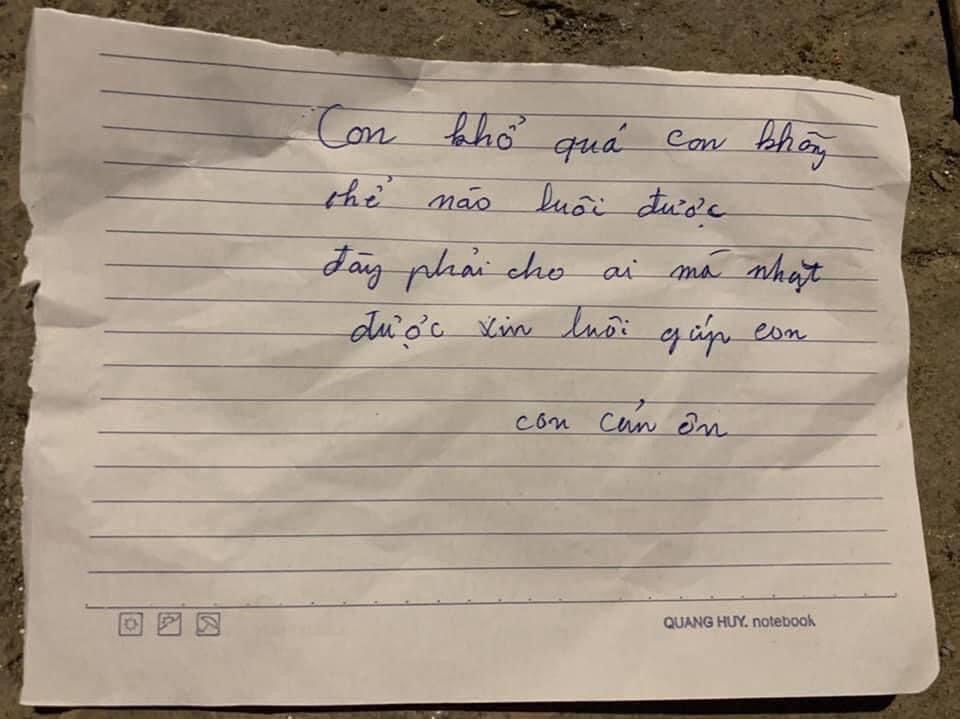 Con khổ quá con không
thể nào luôi được
đăng phải cho ai má nhựt
được xin luôi gúp con
con cản ơn
QUANG HUY. notebook